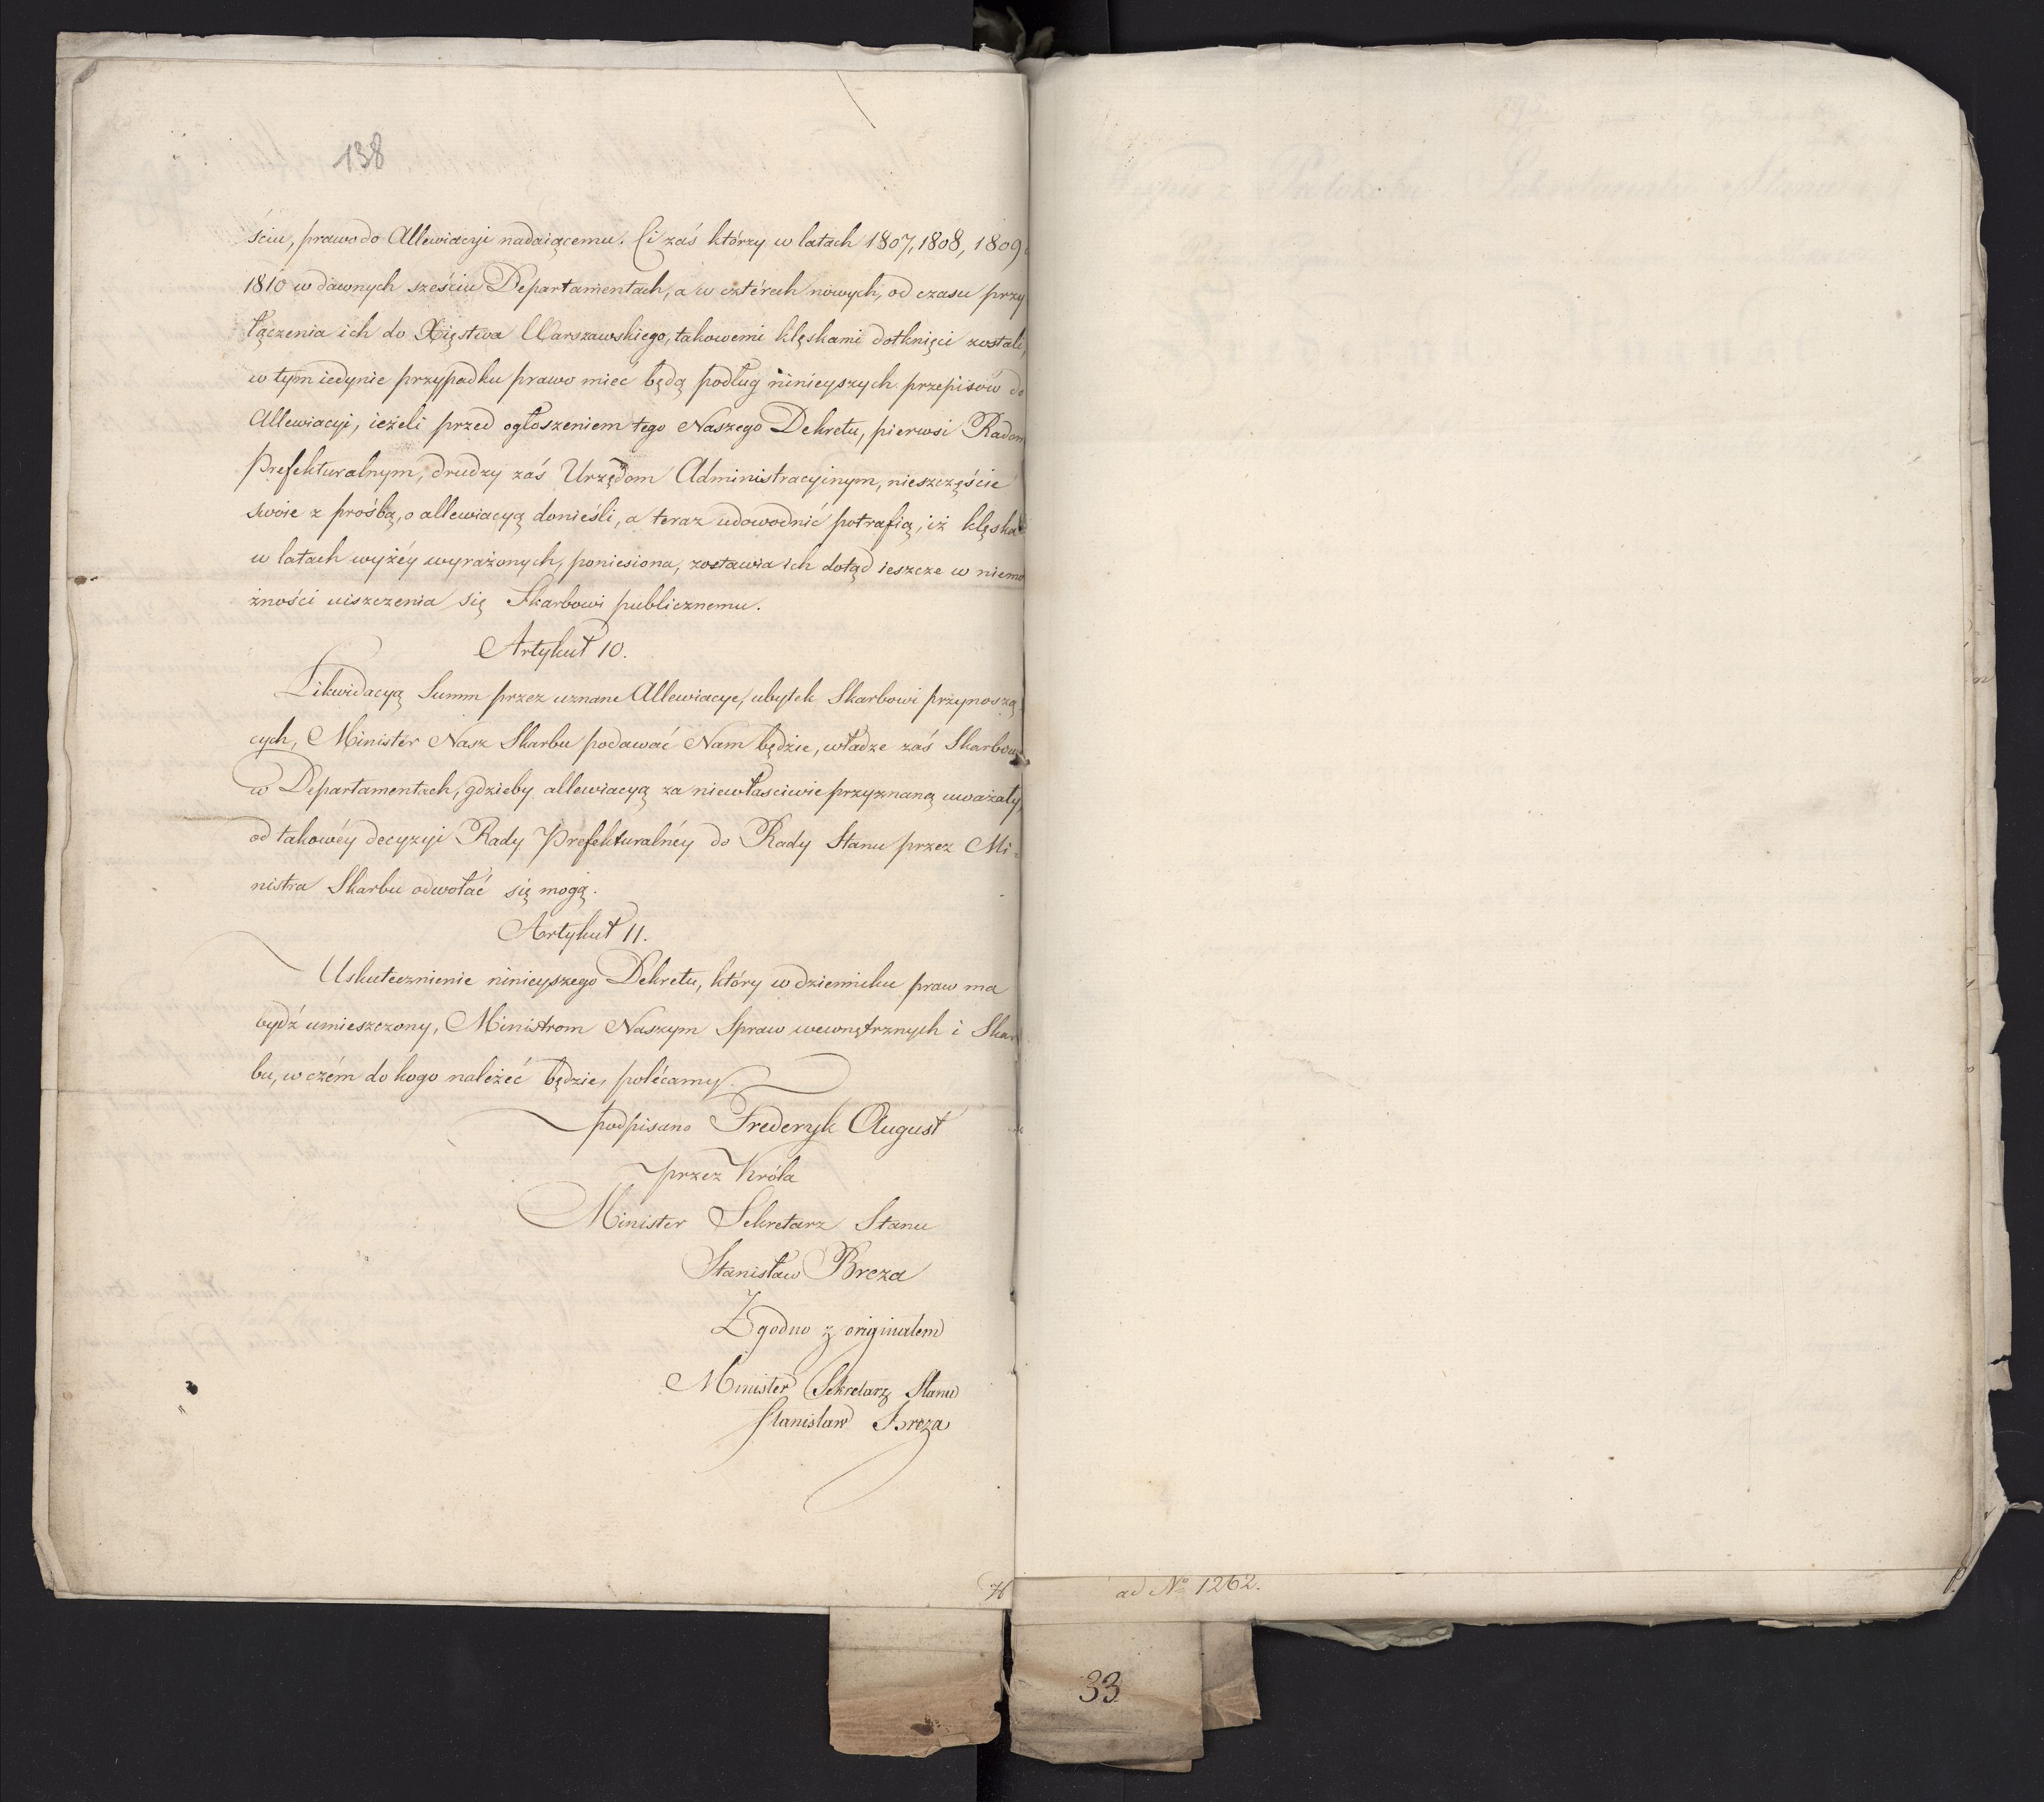 138
ściu, prawo do Allewiacyi nadaiącemu. Ci zaś którzy w latach 1807, 1808, 1809
1810 w dawnych sześciu Departamentach, a w cztérech nowych, od czasu przy
łączenia ich do Xięstwa Warszawskiego, takowemi klęskami dotknięci zostali,
w tym iedynie przypadku prawo mieć będą podług ninieyszych przepisów do
Allewiacyi, ieżeli przed ogłoszeniem tego Naszego Dekretu, pierwsi Radom
Prefekturalnym, drudzy zaś Urzędom Administracyinym, nieszczęście
swoie z prośbą, o allewiacyą donieśli, a teraz udowodnić potrafią, iż klęska
w latach wyżéy wyrażonych, poniesiona, zostawia ich dotąd ieszcze w niemo
żności uiszczenia się Skarbowi publicznemu.
Artykuł 10.
Likwidacyą Summ przez uznane Allewiacye, ubytek Skarbowi przynoszą
cych, Minister Nasz Skarbu podawać Nam będzie, władze zaś Skarbowe
w Departamentach, gdzieby allewiacyą za niewłaściwie przyznaną uważały,
od takowéy decyzyi Rady Prefekturalnéy do Rady Stanu przez Mi-
nistra Skarbu odwołać się mogą.
Artykuł 11.
Uskutecznienie ninieyszego Dekretu, który w dzienniku praw ma
bydź umieszczony, Ministrom Naszym Spraw wewnętrznych i Skar
bu, w czém do kogo należeć będzie, polécamy.
podpisano Frederyk August
przez Króla
Minister Sekretarz Stanu
Stanisław Breza
Zgodno z originałem
Minister Sekretarz Stanu
Stanisław Breza
ad No 1262.
33